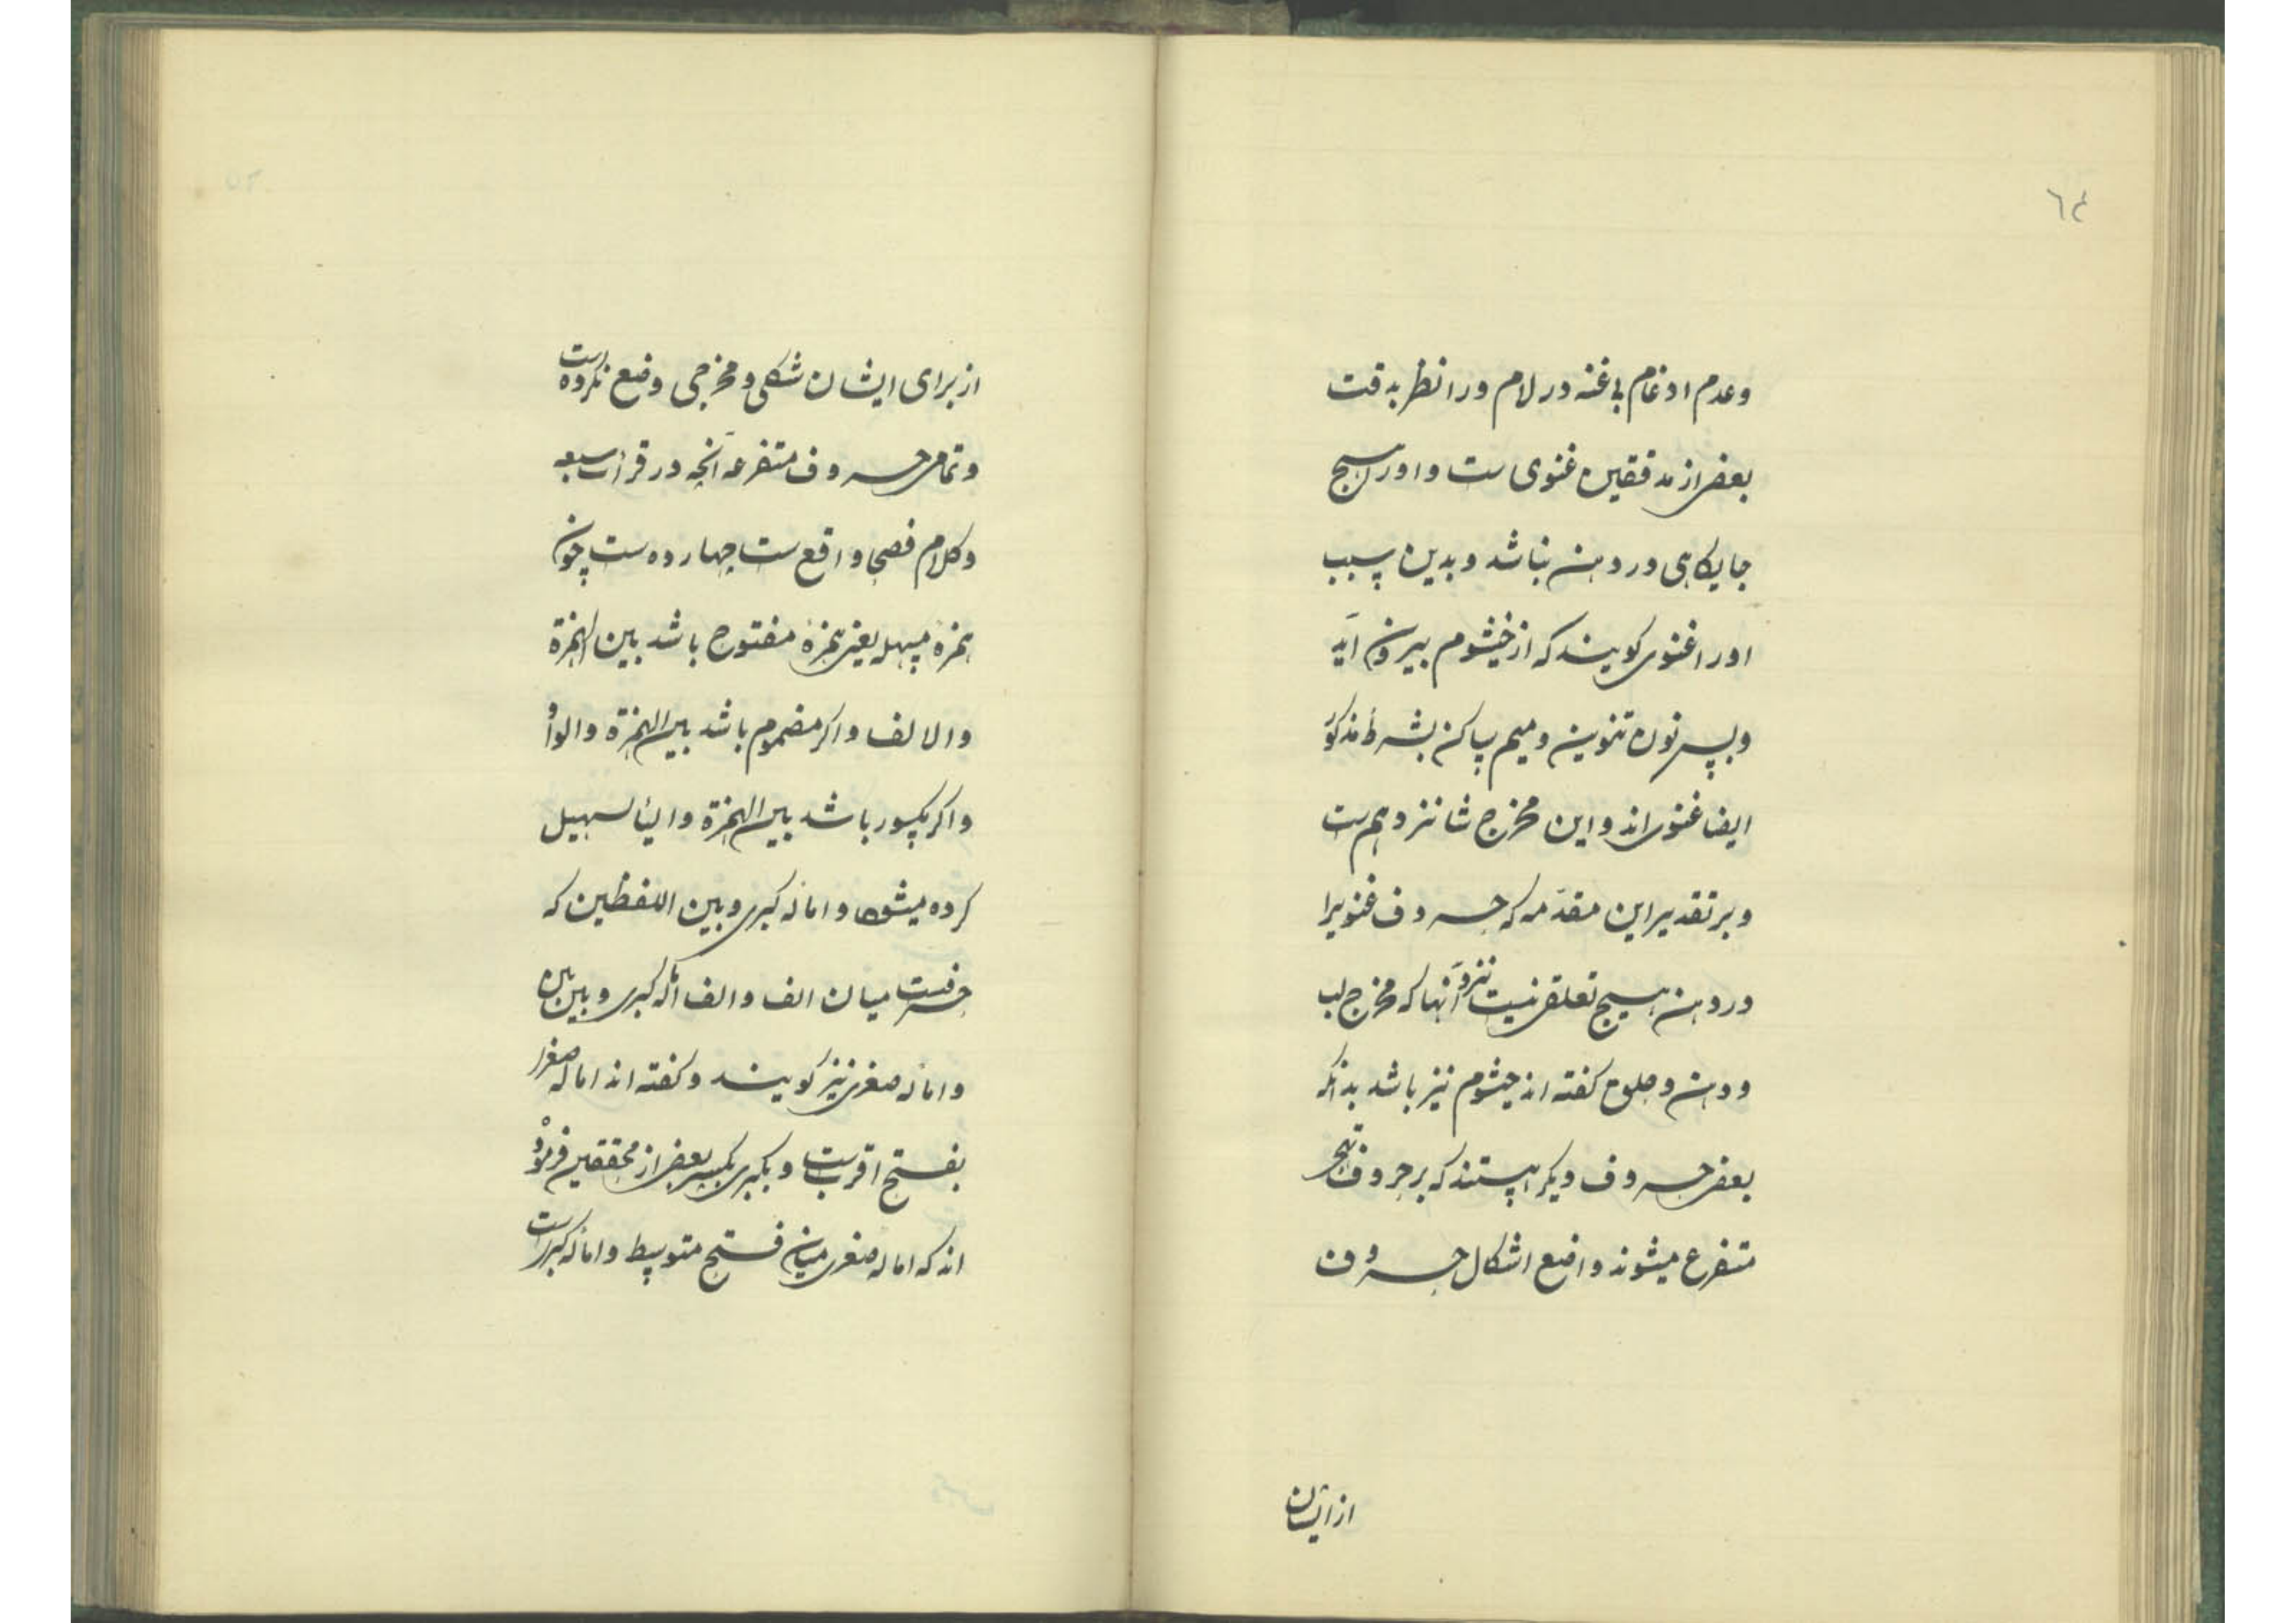 ٦٤
وعدم ادغام بی غنه در لام و را نظر بدقت
بعضی از مدققین غنوی ست و او را هیچ
جایکاهی در دهن نباشد و بدین سبب
او را غنوی کویند که از خیشوم بیرون آید
و پس نون تنوین و میم ساکن بشرط مذکور
ایضا غنوی اند و این مخرج شانزدهم ست
و بر تقدیر این مقدّمه که حروف غنویرا
در دهن هیچ تعلقی نیست نزد آنها که مخرج لب
و دهن و حلق کفته اند خیشوم نیز باشد بدانکه
بعضی حروف دیکر هستند که بر حروف تهجی
متفرع میشوند واضع اشکال حروف
از ایشان
از برای ایشان شکلی و مخرجی وضع نکرده است
و تمامی حروف متفرعه آنچه در قرات سبعه
و کلام فصحا واقع ست چهارده ست چون
همزهٔ مسهله یعنی همزهٔ مفتوح باشد بین الهمزة
والالف و اکر مضموم باشد بین الهمزة والواو
و اکر مکسور باشد بین الهمزة والیا تسهیل
کرده میشود و امالهٔ کبری و بین اللفظین که
حرفیست میان الف والف امالهٔ کبری و بین بین
و امالهٔ صغری نیز کویند و کفته اند امالهٔ صغرا
بفتح اقرب ست و بکبری بکسر بعضی از محققین فرموده
اند که امالهٔ صغری میان فتح متوسط و امالهٔ کبراست